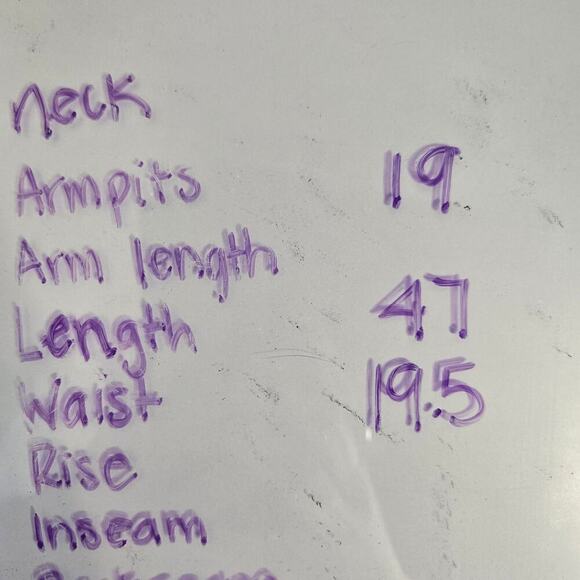 neck
Armpits 19
Arm length
Length 47
Waist 19.5
Rise
Inseam